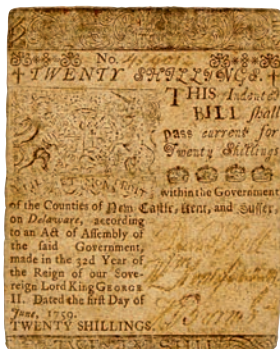 No.
TWENTY SHILLINGS.
THIS Indented
BILL shall
pass current for
Twenty Shillings
within the Government
of the Counties of New Castle, Kent, and Sussex,
on Delaware, according
to an Act of Assembly of
the said Government,
made in the 32d Year of
the Reign of our Sove-
reign Lord King GEORGE
II. Dated the first Day of
June, 1759.
TWENTY SHILLINGS.